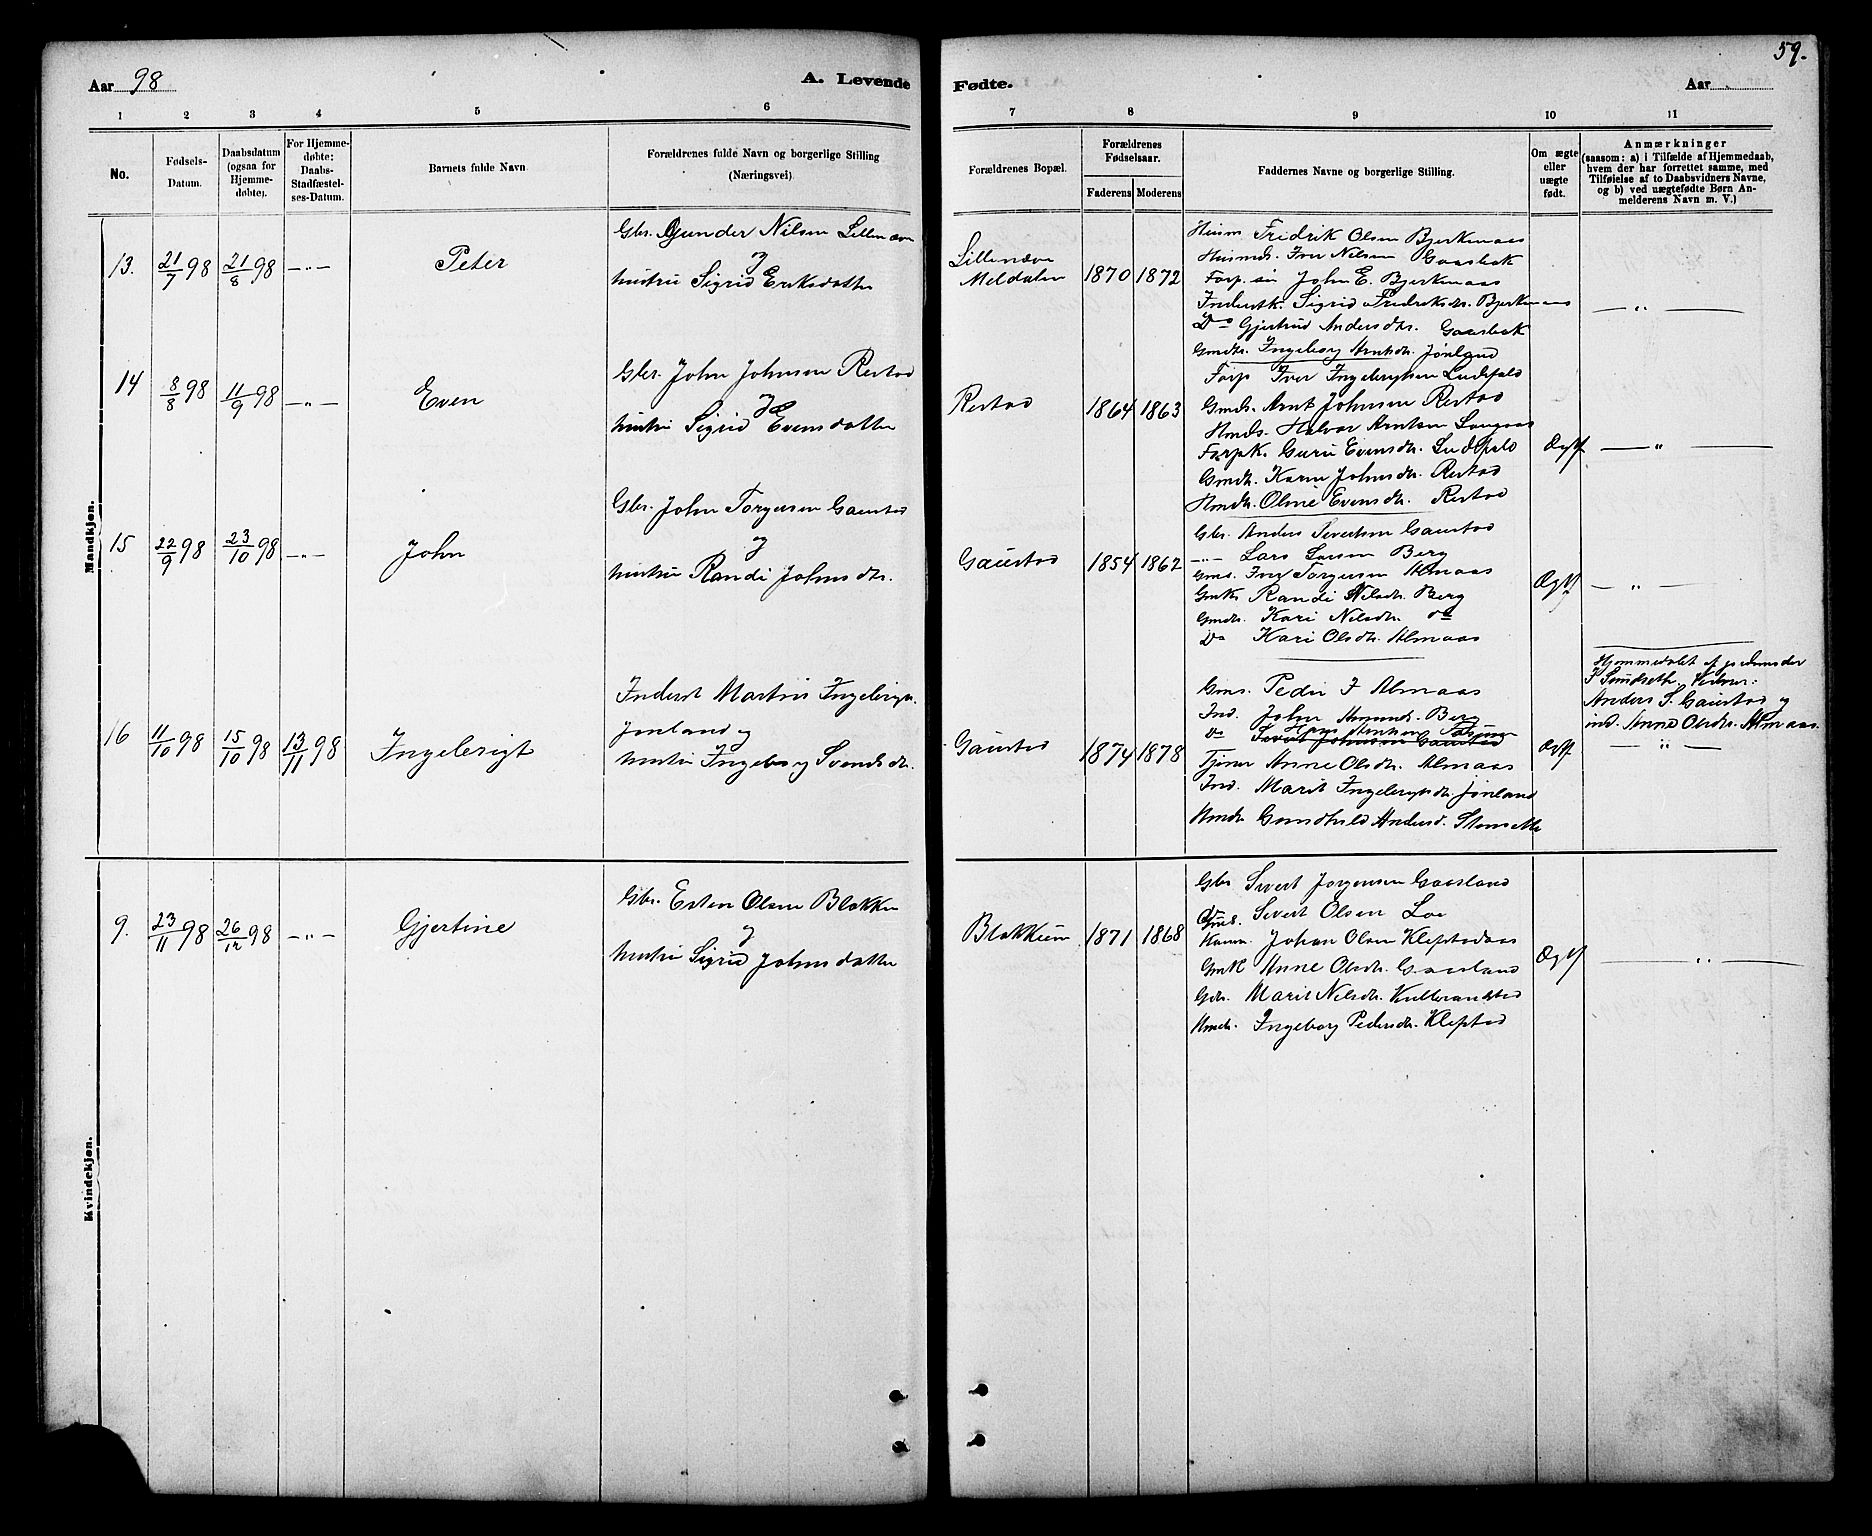 59.
Aar 98
A. Levende
Fødte.
Aar
1 2 3 4 5 6 7 8 9 10 11
No.
Fødsels-Datum.
Daabsdatum (ogsaa for Hjemmedøbte).
For Hjemmedøbte: Daabs-Stadfæstelses-Datum.
Barnets fulde Navn
Forældrenes fulde Navn og borgerlige Stilling
(Næringsvei).
Forældrenes Bopæl.
Forældrenes Fødselsaar.
Faderens Moderens
Faddernes Navne og borgerlige Stilling.
Om ægte eller uægte født.
Anmærkninger
(saasom: a) i Tilfælde af Hjemmedaab,
hvem der har forrettet samme, med
Tilføielse af to Daabsvidners Navne,
og b) ved uægtefødte Børn Anmelderens Navn m. V.)
Mandkjøn.
13. 21/7 98 21/8 98 — „ — Peter
Gbr. Gunder Nilsen
og
hustru Sigrid Eriksdatter
Meldalen
1870 1872
Husm Fredrik Olsen Bjerkmaas
Husmds. Iver Nilsen Gaasbak
John E. Bjerkmaas
Sigrid Fredriksdr. Bjerkmaas
Do Gjertrud Andersdtr. Gaasbak
Gmdtr. Ingeborg Arntsdtr. Jønland
— „ —
14 8/8 98 11/9 98 — „ — Even
Gbr. John Johnsen Restad
og
hustru Sigrid Evensdatter
Restad
1864 1863
Forp Iver Ingebrigtsen
Gmds. Arnt Johnsen Restad
Hmds. Halvor Arntsen
Forpk. Guru Evensdtr.
Gmdtr. Karen Johnsdtr. Restad
Hmdtr. Oline Evensdtr. Restad
Ægte
— „ —
15 22/9 98 23/10 98 — „ — John
Gbr. John Torgersen Gaustad
og
hustru Randi Johnsdtr.
Gaustad
1854 1862
Gbr. Anders Sivertsen Gaustad
— „ — Lars Larsen Berg
Gms. Iver Torgersen Almaas
Gmk Randi Nilsdtr. Berg
Gmdtr. Kari Nilsdtr. do
Do Kari Olsdtr. Almaas
Ægte
— „ —
16 11/10 98 15/10 98 13/11 98 Ingebrigt
Inderst Martin Ingebrigts.
Jønland og
hustru Ingeborg Svendsdr.
Gaustad
1874 1878
Gms. Peder I Almaas
Ind. John Amunds. Berg
do
Sivert Johnsen Gaustad
Tjener Anne Olsdtr. Almaas
Ind. Marit Ingebrigtsdtr. Jønland
Hmdtr Gundhild Andersd.
Ægte
Hjemmedøbt af
Anders S. Gaustad og
ind. Anne Olsdtr. Almaas.
— „ —
Kvindekjøn.
9. 23/11 98 26/12 98 — „ — Gjertine
Gbr. Esten Olsen Blokkum
og
hustru Sigrid Johnsdatter
Blokkum
1871 1868
Gbr Sivert Jørgensen Gaasland
Gmds. Sivert Olsen Loe
Johan Olsen
Gmk Anne Olsdtr. Gaasland
Gdr. Marit Nilsdtr.
Hmdtr. Ingeborg Pedersdtr. Klefstad
Ægte
— „ —